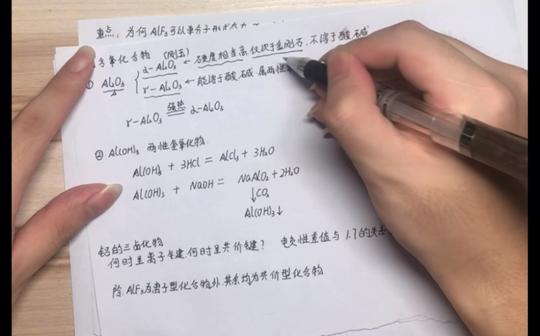 重点, 为何 AlF₃ 可以
含氧化合物 (刚玉)
① Al₂O₃ α-Al₂O₃ ← 硬度相当高, 仅次于金刚石, 不溶于酸、碱
γ-Al₂O₃ ← 能溶于酸、碱, 属两性
γ-Al₂O₃ 强热 α-Al₂O₃
② Al(OH)₃ 两性氢氧化物
Al(OH)₃ + 3HCl = AlCl₃ + 3H₂O
Al(OH)₃ + NaOH = NaAlO₂ + 2H₂O
↓CO₂
Al(OH)₃↓
铝的三卤化物
何时呈离子键何时呈共价键? 电负性差值与 1.7 的关系
除 AlF₃ 为离子型化合物外, 其余均为共价型化合物